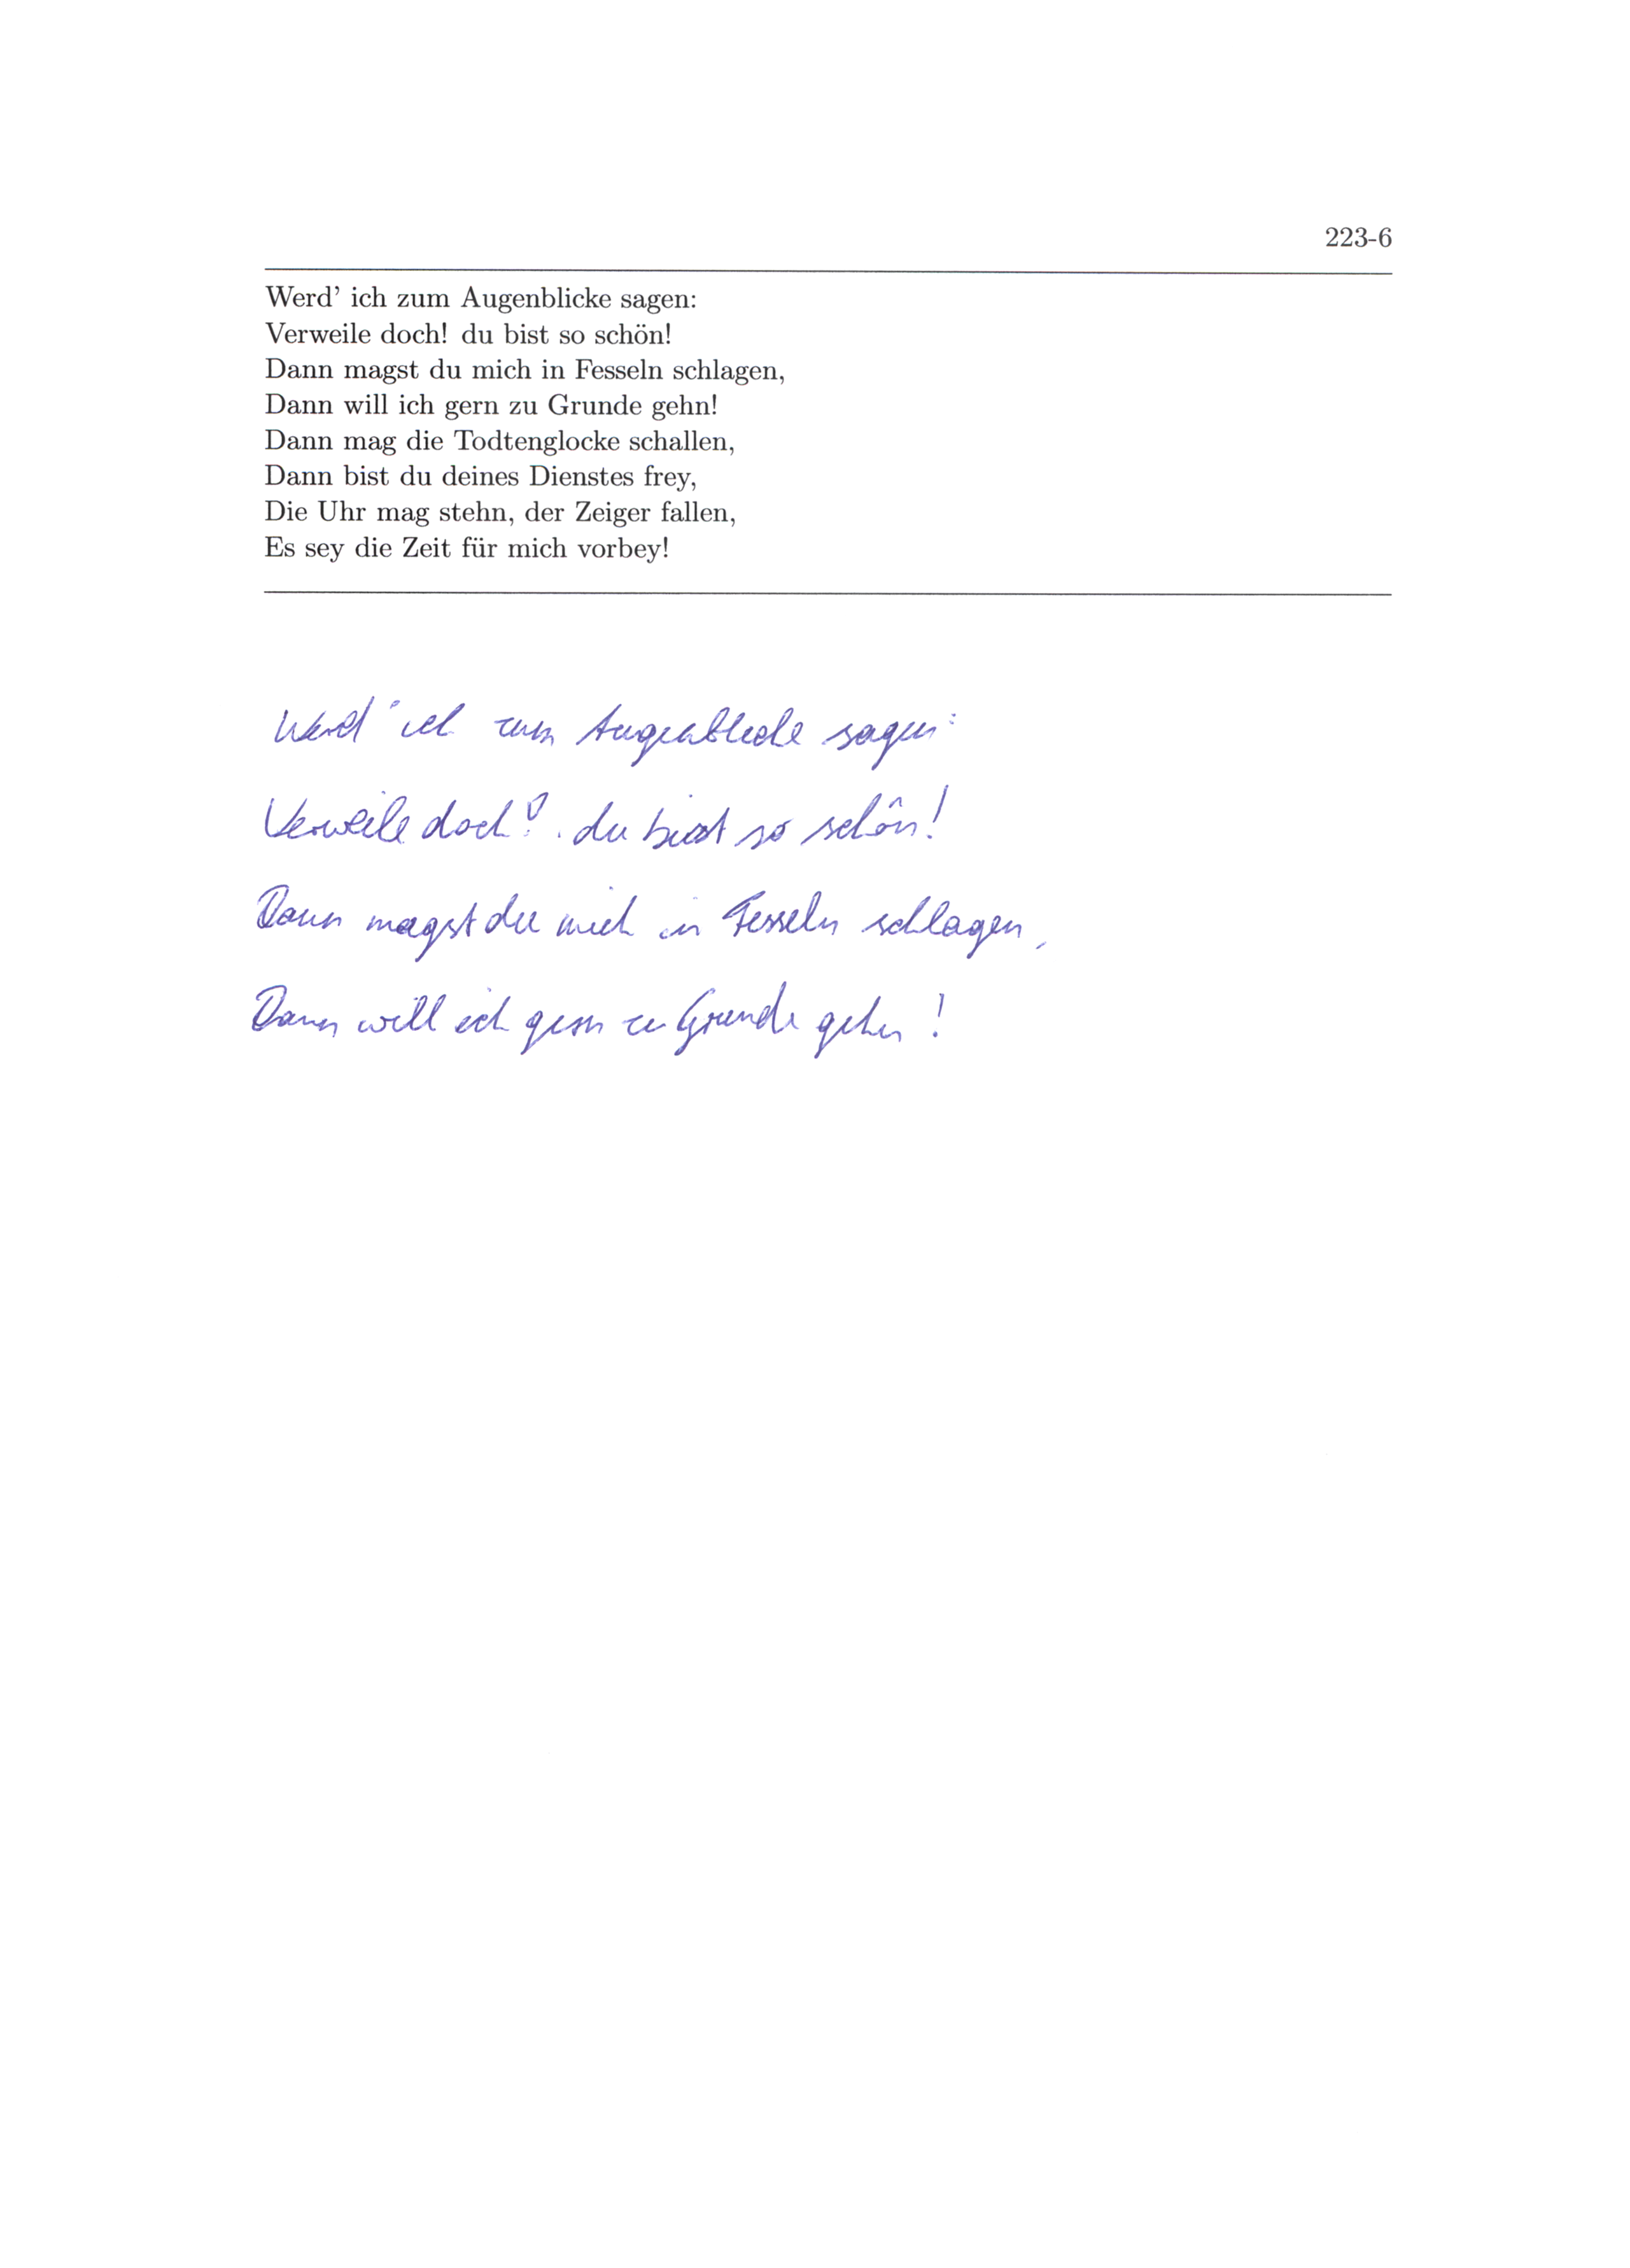 223-6
Werd' ich zum Augenblicke sagen:
Verweile doch! du bist so schön!
Dann magst du mich in Fesseln schlagen,
Dann will ich gern zu Grunde gehn!
Dann mag die Todtenglocke schallen,
Dann bist du deines Dienstes frey,
Die Uhr mag stehn, der Zeiger fallen,
Es sey die Zeit für mich vorbey!
Werd' ich zum Augenblicke sagen:
Verweile doch! du bist so schön!
Dann magst du mich in Fesseln schlagen,
Dann will ich gern zu Grunde gehn!